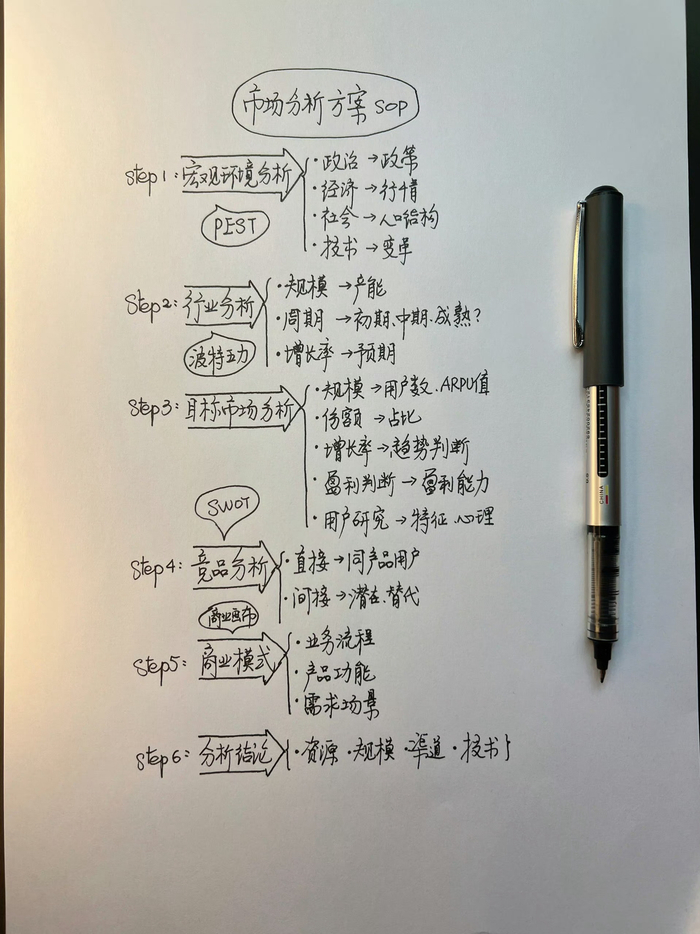 市场分析方案 SOP
Step1: 宏观环境分析
PEST
·政治→政策
·经济→行情
·社会→人口结构
·技术→变革
Step2: 行业分析
波特五力
·规模→产能
·周期→初期、中期、成熟?
·增长率→预期
Step3: 目标市场分析
·规模→用户数、ARPU值
·份额→占比
·增长率→趋势判断
·盈利判断→盈利能力
·用户研究→特征、心理
SWOT
Step4: 竞品分析
·直接→同产品用户
·间接→潜在、替代
商业画布
Step5: 商业模式
·业务流程
·产品功能
·需求场景
Step6: 分析结论
·资源·规模·渠道·技术
CHINA